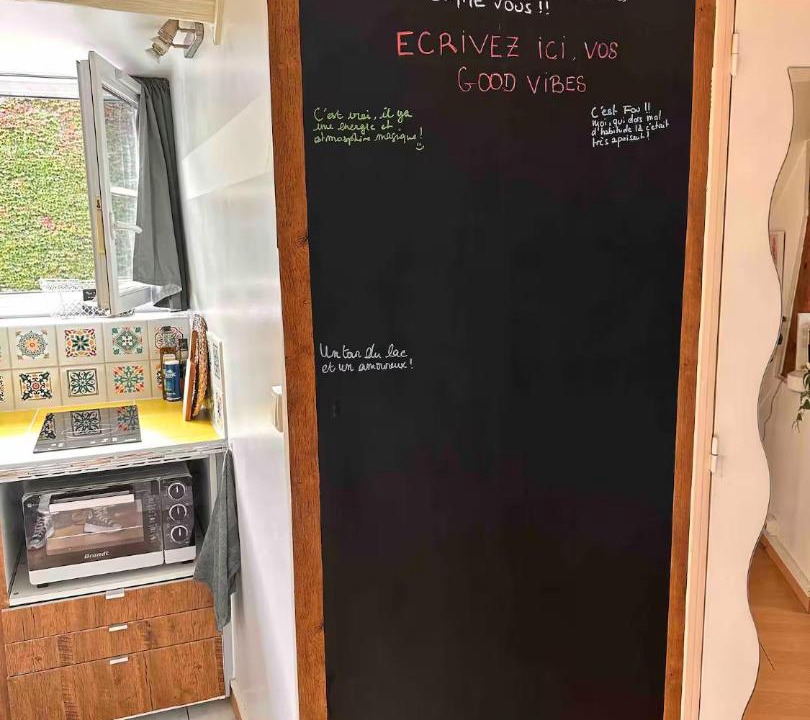 VOUS !!
ECRIVEZ iCi, VOS
GOOD ViBES
C'est vrai, il y a
une énergie et
atmosphère magique !
C'est Fou !!
Moi, qui dors mal
d'habitude là c'était
très apaisant !
Un tour du lac
et un amoureux !
Brandt